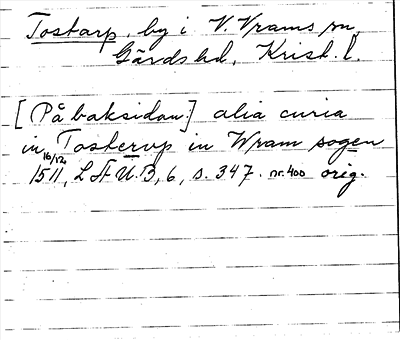 Tostarp, by i V. Vrams sn,
Gärds hd, Krist. l.
[På baksidan:] alia curia
in Tosterup in Wram sogen
16/12 1511, LÄUB, 6, s. 347. nr. 400 orig.